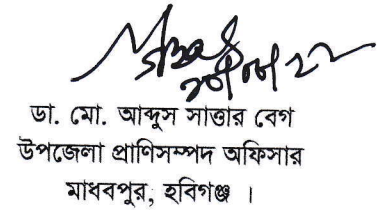 ডা. মো. আব্দুস সাত্তার বেগ
উপজেলা প্রাণিসম্পদ অফিসার
মাধবপুর, হবিগঞ্জ ।